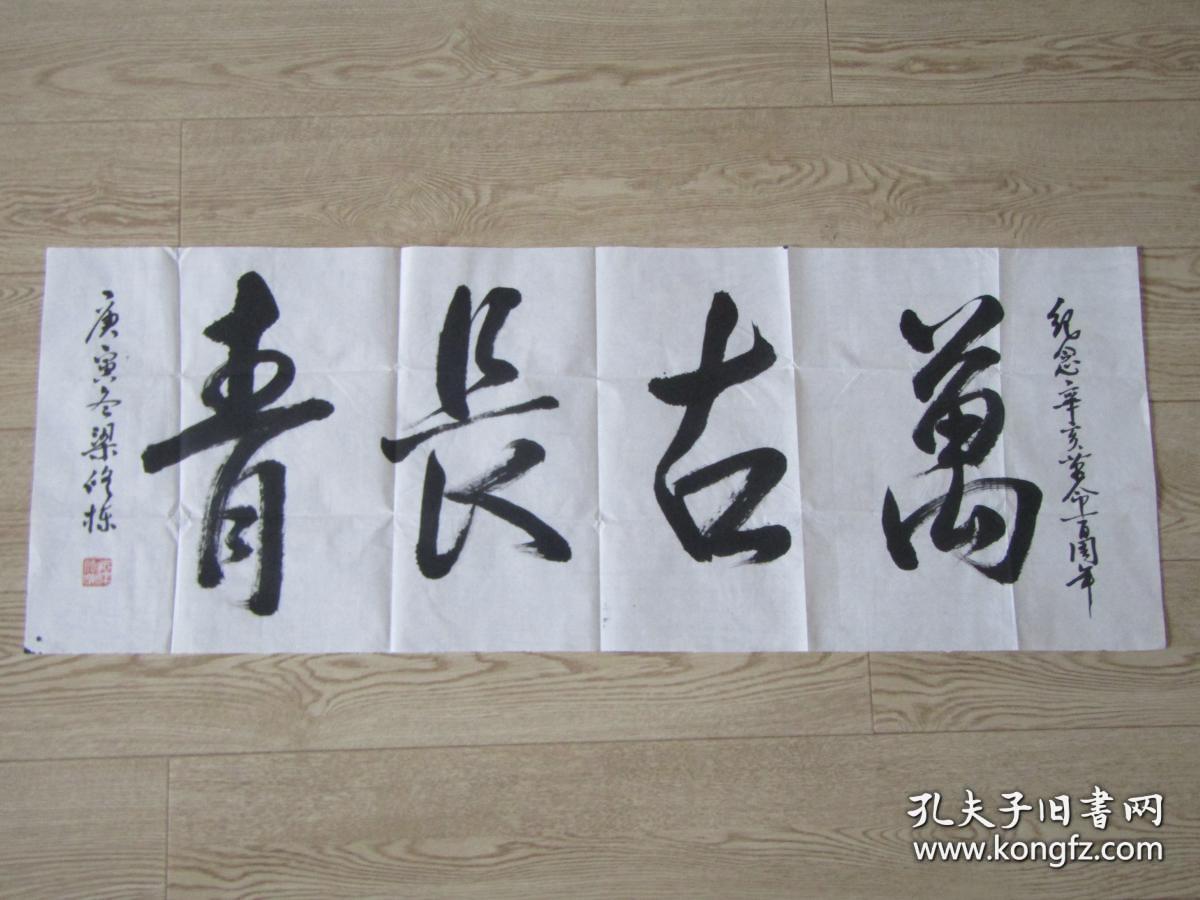 紀念辛亥革命百周年
萬古長青
庚寅冬梁修栋
孔夫子旧書网
www.kongfz.com